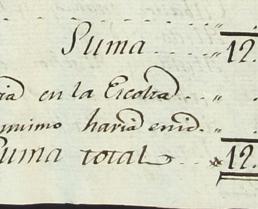 Suma..... „ 12.
ria en la Escolta... „
mimo haria en id. „
Suma total.... „ 12.